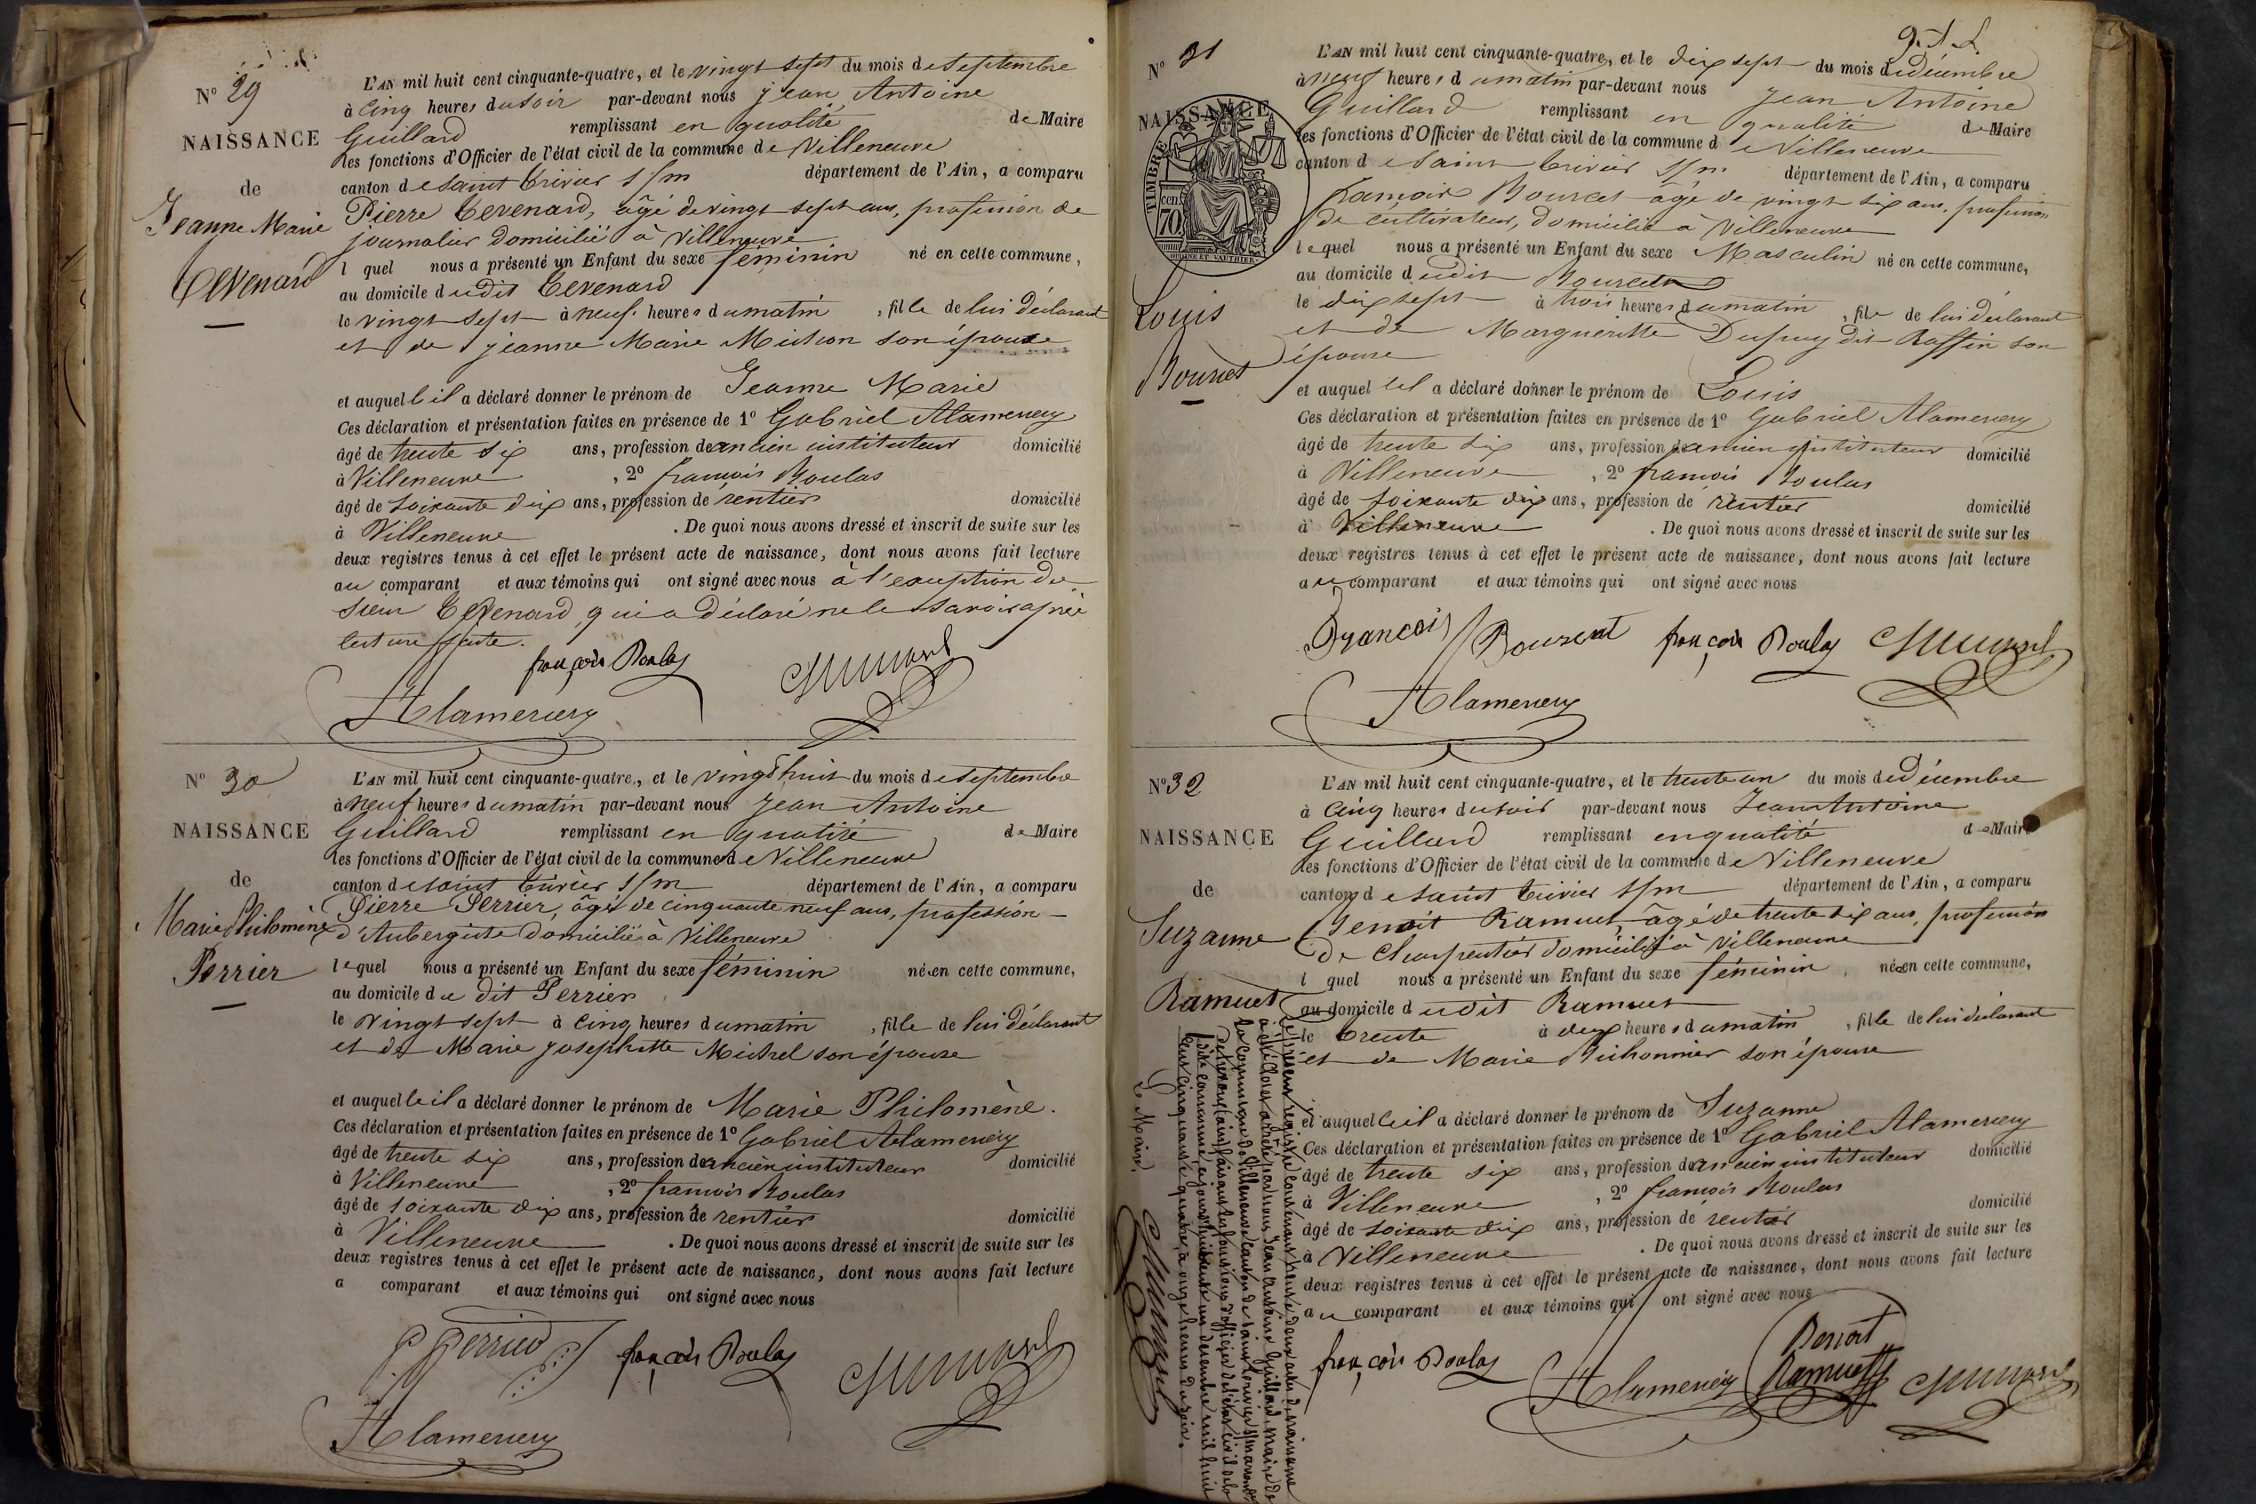 N° 29
NAISSANCE
de
Jeanne Marie
Tevenard
L'AN mil huit cent cinquante-quatre, et le vingt sept du mois de septembre
à cinq heures du soir par-devant nous Jean Antoine
Guillard remplissant en qualité de Maire
les fonctions d'Officier de l'état civil de la commune de Villeneuve
canton de saint trivier s/m département de l'Ain, a comparu
Pierre Tevenard, âgé de vingt sept ans, profession de
journalier domicilié à Villeneuve
l quel nous a présenté un Enfant du sexe féminin né en cette commune,
au domicile dudit Tevenard
le vingt sept à neuf heures du matin, fille de lui déclarant
et de Jeanne Marie Michon son épouse
et auquel il a déclaré donner le prénom de Jeanne Marie
Ces déclaration et présentation faites en présence de 1° Gabriel Alamercery
âgé de trente six ans, profession d'ancien instituteur domicilié
à Villeneuve, 2° françois Boulas
âgé de soixante dix ans, profession de rentier domicilié
à Villeneuve. De quoi nous avons dressé et inscrit de suite sur les
deux registres tenus à cet effet le présent acte de naissance, dont nous avons fait lecture
au comparant et aux témoins qui ont signé avec nous à l'exception du
sieur Tevenard, qui a déclaré ne le savoir après
lecture faite.
françois Boulas Guillard
Alamercery
N° 30
NAISSANCE
de
Marie Philomène
Perrier
L'AN mil huit cent cinquante-quatre, et le vingt huit du mois de septembre
à neuf heures du matin par-devant nous Jean Antoine
Guillard remplissant en qualité de Maire
les fonctions d'Officier de l'état civil de la commune de Villeneuve
canton de saint trivier s/m département de l'Ain, a comparu
Pierre Perrier, âgé de cinquante neuf ans, profession
d'Aubergiste domicilié à Villeneuve
lequel nous a présenté un Enfant du sexe féminin née en cette commune,
au domicile du dit Perrier
le vingt sept à cinq heures du matin, fille de lui déclarant
et de Marie Josephtte Michel son épouse
et auquel il a déclaré donner le prénom de Marie Philomène.
Ces déclaration et présentation faites en présence de 1° Gabriel Alamercery
âgé de trente six ans, profession d'ancien instituteur domicilié
à Villeneuve, 2° françois Boulas
âgé de soixante dix ans, profession de rentier domicilié
à Villeneuve. De quoi nous avons dressé et inscrit de suite sur les
deux registres tenus à cet effet le présent acte de naissance, dont nous avons fait lecture
a comparant et aux témoins qui ont signé avec nous
P. Perrier françois Boulas Guillard
Alamercery
N° 31
NAISSANCE
TIMBRE
70 cen.
Louis
Bourcet
L'AN mil huit cent cinquante-quatre, et le dix sept du mois de décembre
à neuf heures du matin par-devant nous Jean Antoine
Guillard remplissant en qualité de Maire
les fonctions d'Officier de l'état civil de la commune de Villeneuve
canton de saint trivier s/m département de l'Ain, a comparu
françois Bourcet âgé de vingt six ans, profession
de cultivateur, domicilié à Villeneuve
lequel nous a présenté un Enfant du sexe Masculin né en cette commune,
au domicile dudit Bourcet
le dix sept à trois heures du matin, fils de lui déclarant
et de Margueritte Dupuy dit Raffin son
épouse
et auquel il a déclaré donner le prénom de Louis
Ces déclaration et présentation faites en présence de 1° Gabriel Alamercery
âgé de trente six ans, profession d'ancien instituteur domicilié
à Villeneuve, 2° françois Boulas
âgé de soixante dix ans, profession de rentier domicilié
à Villeneuve. De quoi nous avons dressé et inscrit de suite sur les
deux registres tenus à cet effet le présent acte de naissance, dont nous avons fait lecture
au comparant et aux témoins qui ont signé avec nous
françois Boulas Guillard
Alamercery
N° 32
NAISSANCE
de
Suzanne
Ramuet
L'AN mil huit cent cinquante-quatre, et le trente un du mois de décembre
à cinq heures du soir par-devant nous Jean Antoine
Guillard remplissant en qualité de Maire
les fonctions d'Officier de l'état civil de la commune de Villeneuve
canton de saint trivier s/m département de l'Ain, a comparu
Benoit Ramuet, âgé de trente six ans, profession
de Charpentier domicilié à Villeneuve
l quel nous a présenté un Enfant du sexe féminin, née en cette commune,
au domicile dudit Ramuet
le trente à dix heures du matin, fille de lui déclarant
et de Marie Michonnier son épouse
et auquel il a déclaré donner le prénom de Suzanne
Ces déclaration et présentation faites en présence de 1° Gabriel Alamercery
âgé de trente six ans, profession d'ancien instituteur domicilié
à Villeneuve, 2° françois Boulas
âgé de soixante dix ans, profession de rentier domicilié
à Villeneuve. De quoi nous avons dressé et inscrit de suite sur les
deux registres tenus à cet effet le présent acte de naissance, dont nous avons fait lecture
au comparant et aux témoins qui ont signé avec nous
françois Boulas Alamercery Benoit Ramuet Guillard
Le présent registre contenant trente deux actes de naissance
a été clos et arrêté par nous Jean Antoine Guillard Maire de
la commune de Villeneuve canton de saint trivier s/m
faisant les fonctions d'officier de l'état civil de la
dite commune, aujourd'hui trente un décembre mil huit
cent cinquante quatre, à onze heures du soir.
Le Maire,
Guillard